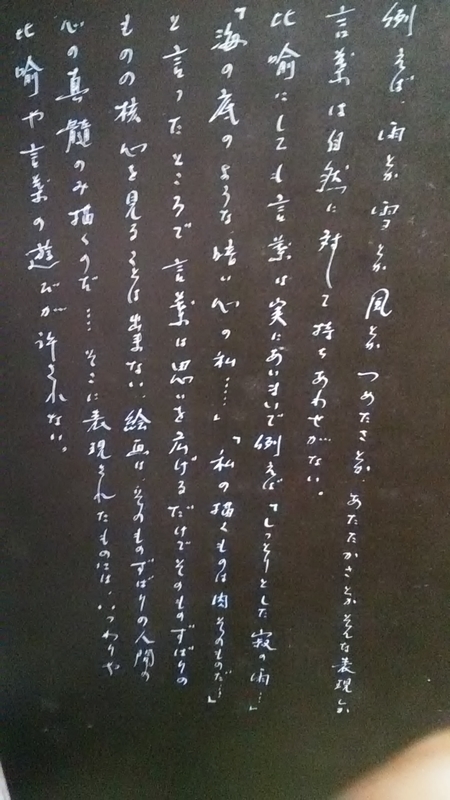 例えば、雨とか雪とか風とか つめたさとか、あたたかさとか そんな表現しか
言葉は自然に対して持ちあわせがない。
比喩にしても言葉は実にあいまいで例えば「しっとりとした寂の雨…」
「海の底のような暗い心の私……」「私の描くものは肉そのものだ…」
と言ったところで言葉は思いを広げるだけでそのものずばりの
ものの核心を見ることは出来ない、絵画は、そのものずばりの人間の
心の真髄のみ描くのだ…、そこに表現されたものには、いつわりや
比喩や言葉の遊びが許されない。